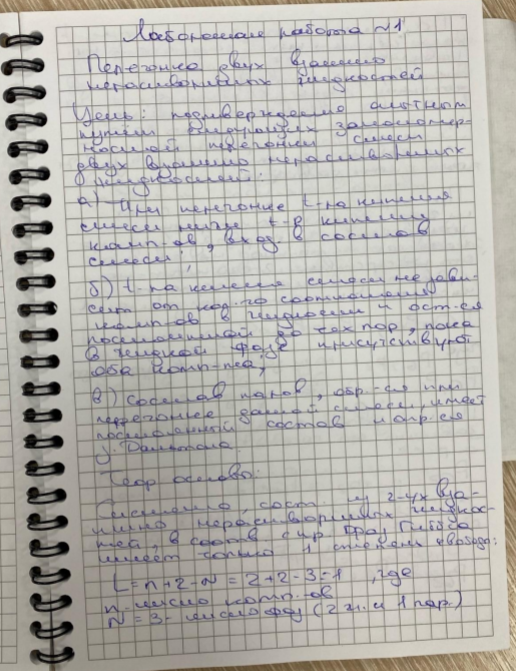 Лабораторная работа №1
Перегонка двух взаимно
нерастворимых жидкостей
Цель: подтверждение опытным
путём следующих закономер-
ностей перегонки смеси
двух взаимно нерастворимых
жидкостей:
а) При перегонке t-ра кипения
смеси ниже t-р кипения
комп-ов, вход. в состав
смеси;
б) t-ра кипения смеси не зави-
сит от кол-го соотношения
комп-ов в жидкости и ост-ся
постоянной до тех пор, пока
в жидкой фазе присутствуют
оба комп-та;
в) Состав паров, обр-ся при
перегонке данной смеси, имеет
постоянный состав и опр-ся
з. Дальтона.
Теор. основы:
Система, сост. из 2-ух вза-
имно нерастворимых жидкос-
тей, в соотв. с пр. фаз Гиббса
имеет только 1 степень свободы:
L = n + 2 - N = 2 + 2 - 3 = 1, где
n - число комп-ов
N = 3 - число фаз (2 ж. и 1 пар.)